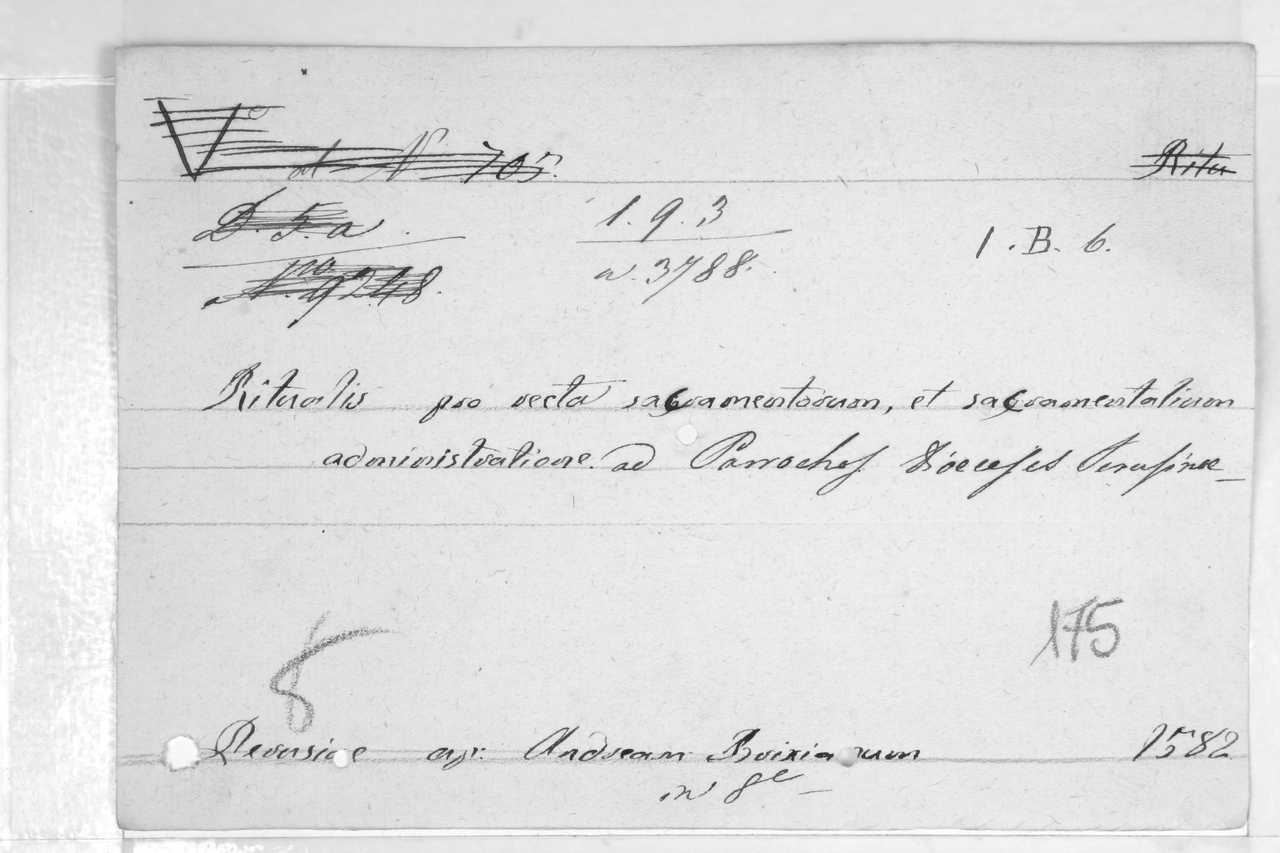 V° at N 705.
Ritu
D. 5. a
1. 9. 3
1. B. 6.
N.ro 9248.
a. 3788.
Ritualis pro recta sacramentorum, et sacramentalium
administratione ad Parrochos Dioecesis Perusinae
175
8
Perusiae ap. Andream Brixianum 1582
in 8e